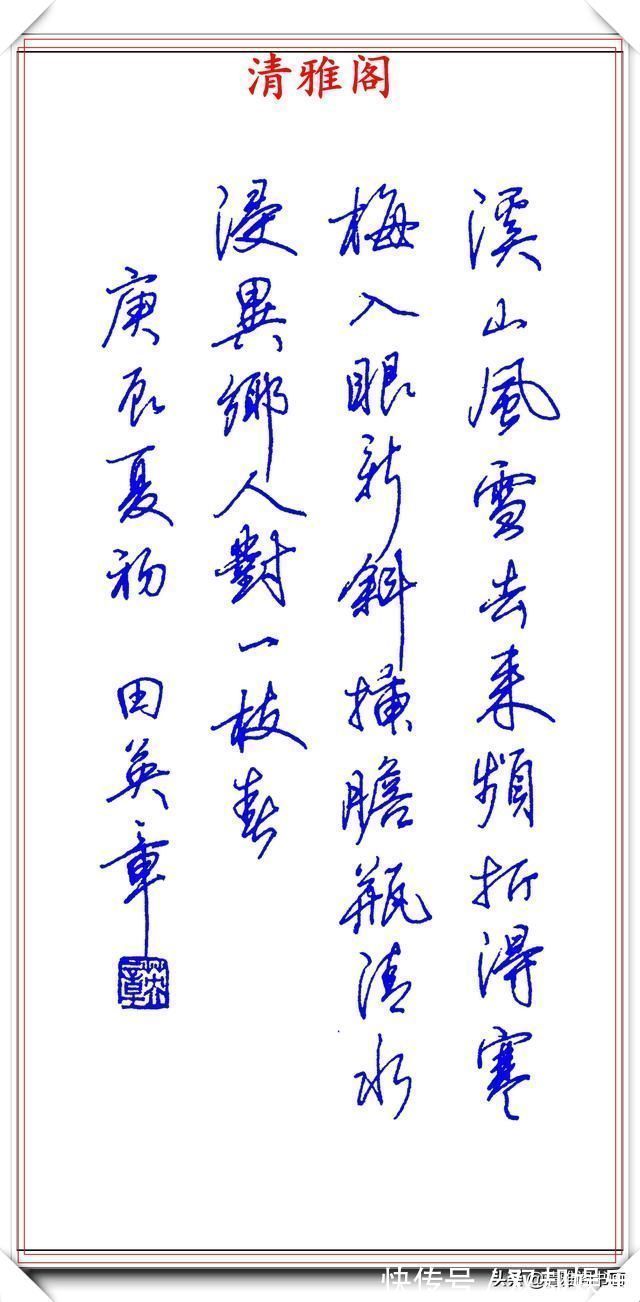 清雅阁
溪山風雪去来頻折得寒
梅入眼新斜插膽瓶清水
浸異鄉人對一枝春
庚辰夏初 田英章
快传号